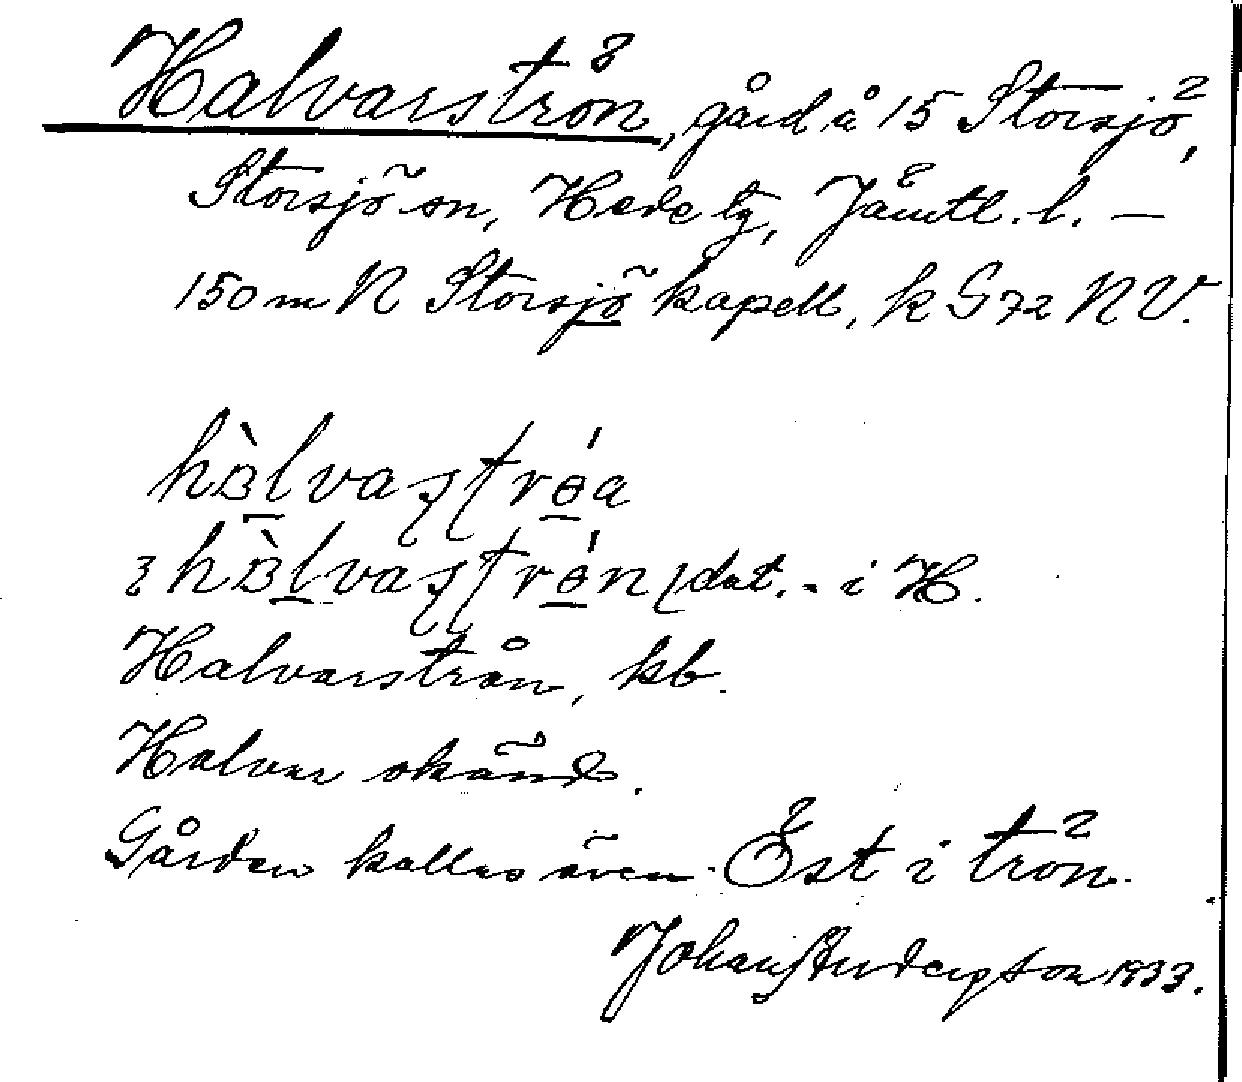 Halvarströn, gård å 15 Storsjö,
Storsjö sn, Hede tg, Jämtl. l. —
150 m N Storsjö kapell, k G 72 NV.
hàlvaștrǿa
hàlvaștrǿn dat. - i H.
Halvarstrån, kb.
Halvar okänd.
Gården kallas även Öst i trön.
Johan Anderson 1933.